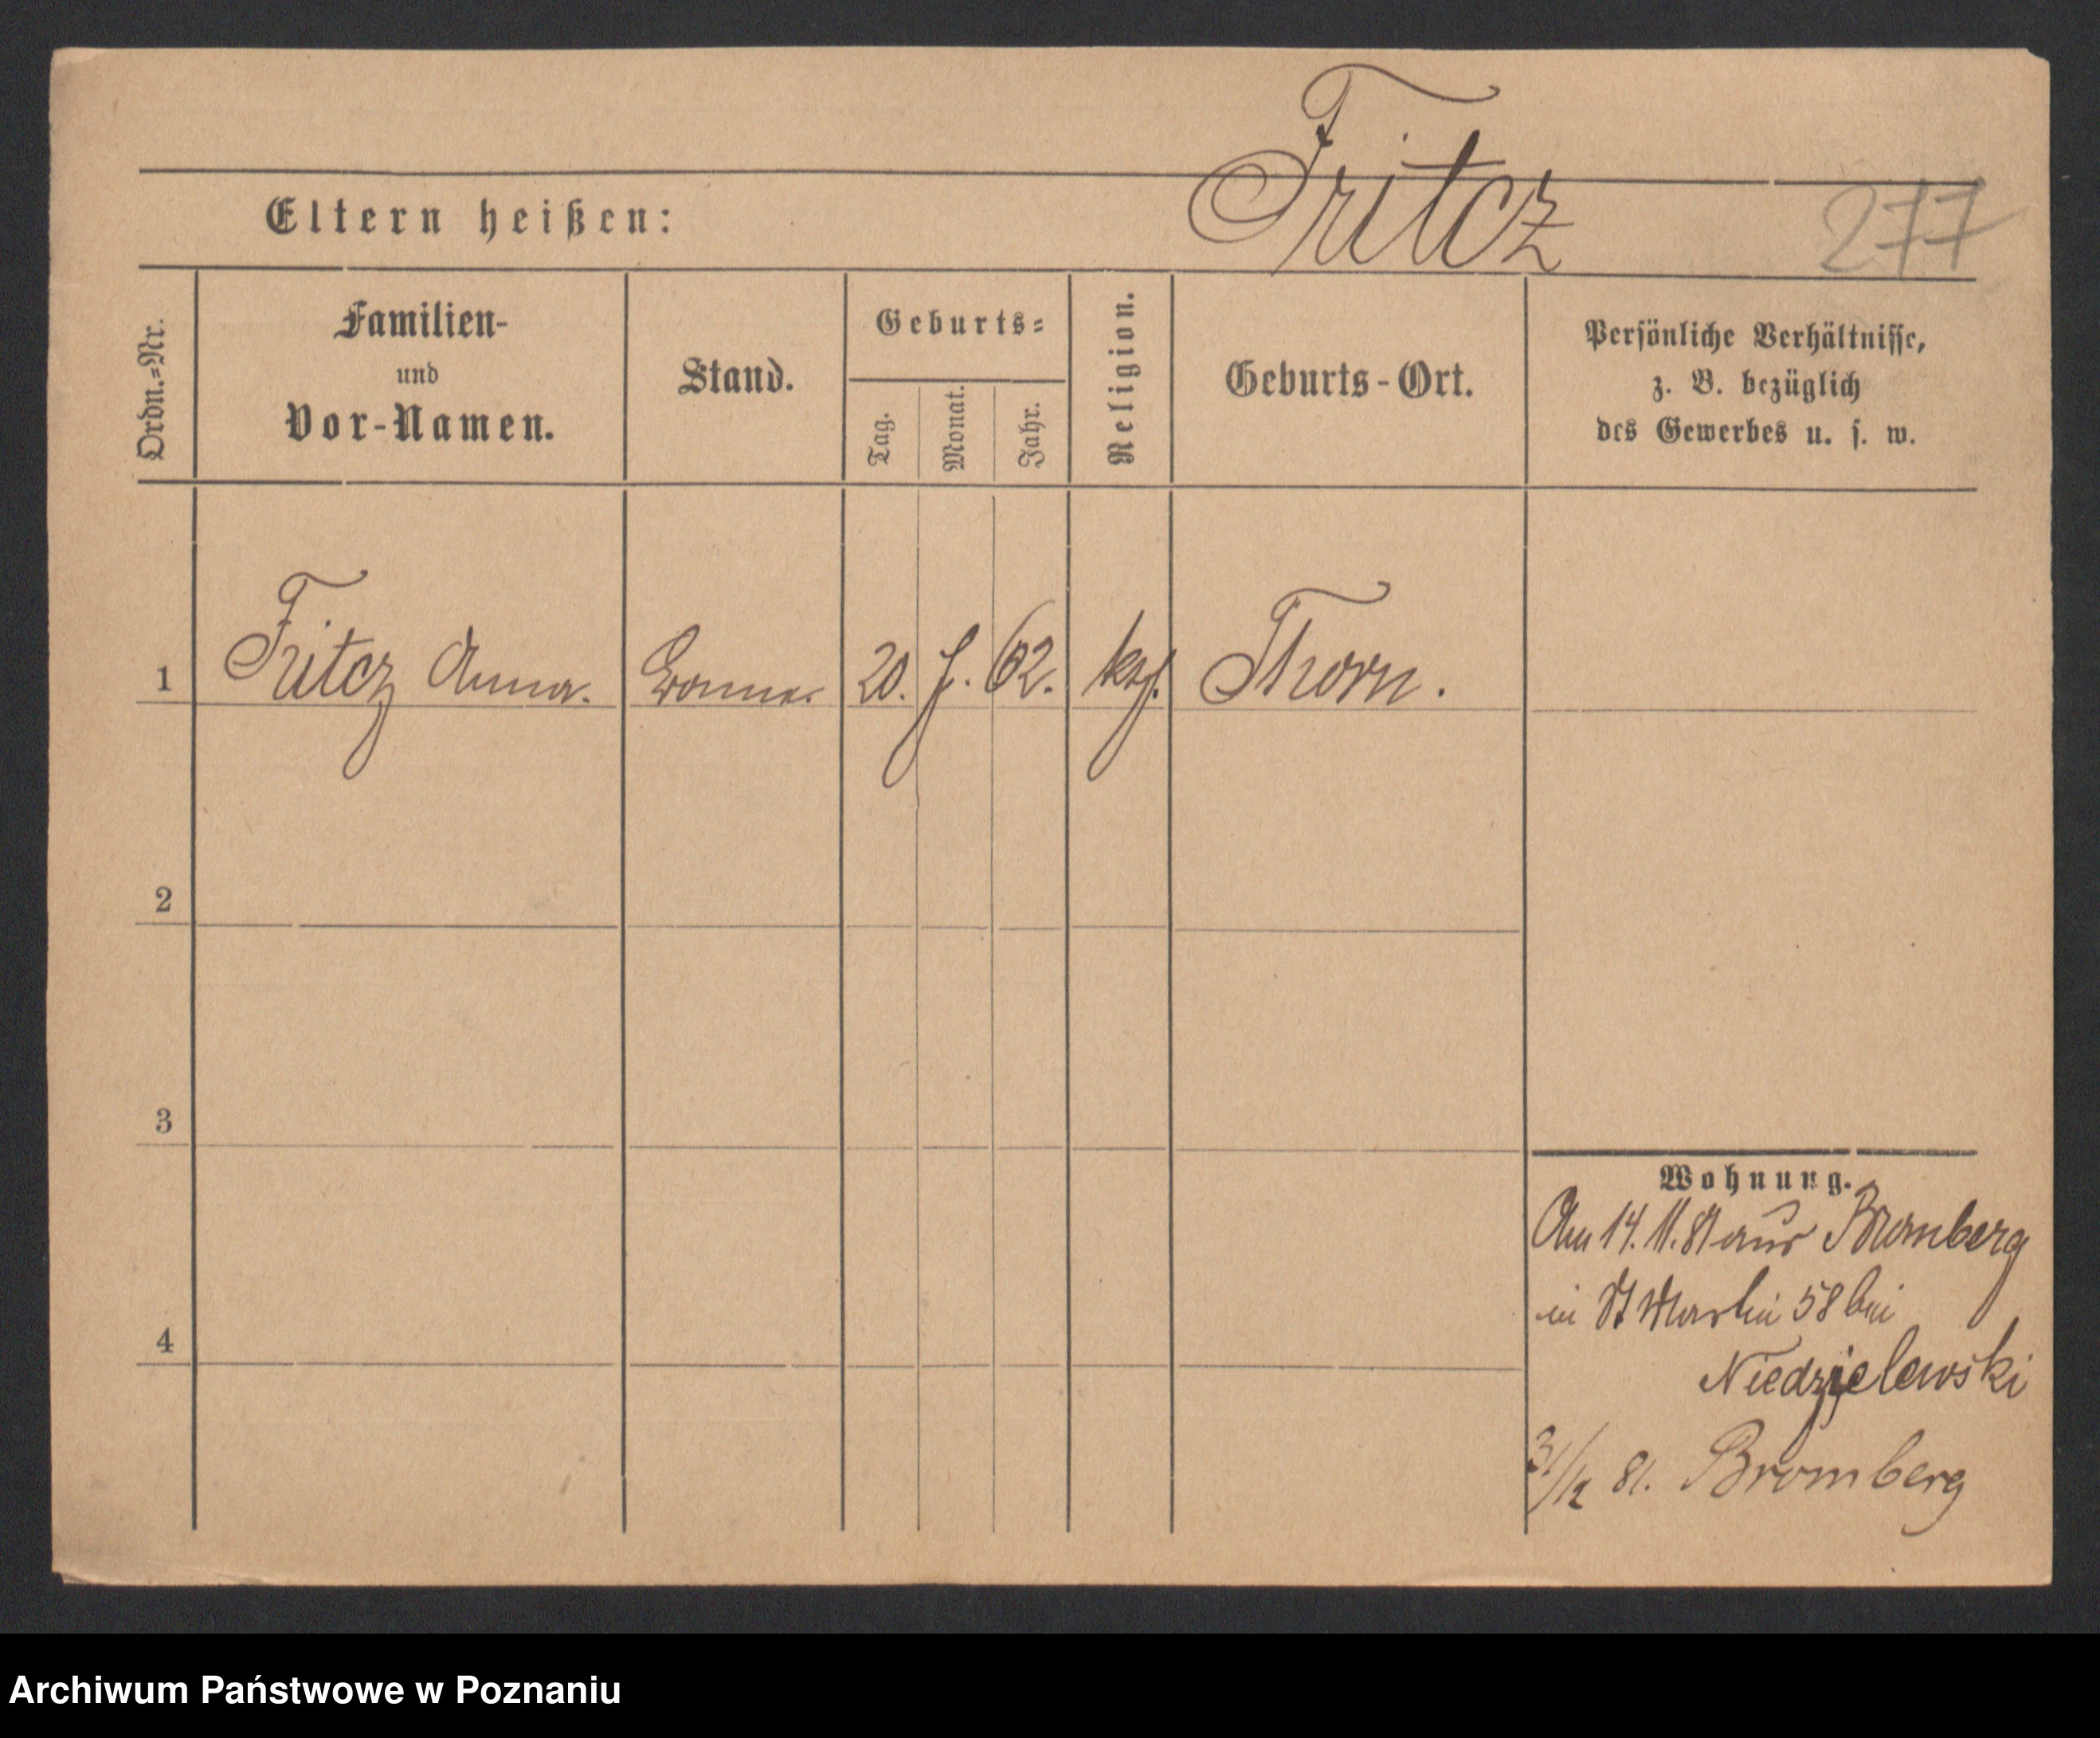 Fritcz
277
Eltern heißen:
Ordn.=Nr.
Familien-
und
Vor-Namen.
Stand.
Geburts=
Tag.
Monat.
Jahr.
Religion.
Geburts-Ort.
Persönliche Verhältnisse,
z. B. bezüglich
des Gewerbes u. s. w.
1 Fritcz Anna. 20. 62. Thorn.
2
3
4
Wohnung.
Am 14.11.81 aus Bromberg
in St Martin 58 bei
Niedzielewski
31/12 81. Bromberg
Archiwum Państwowe w Poznaniu